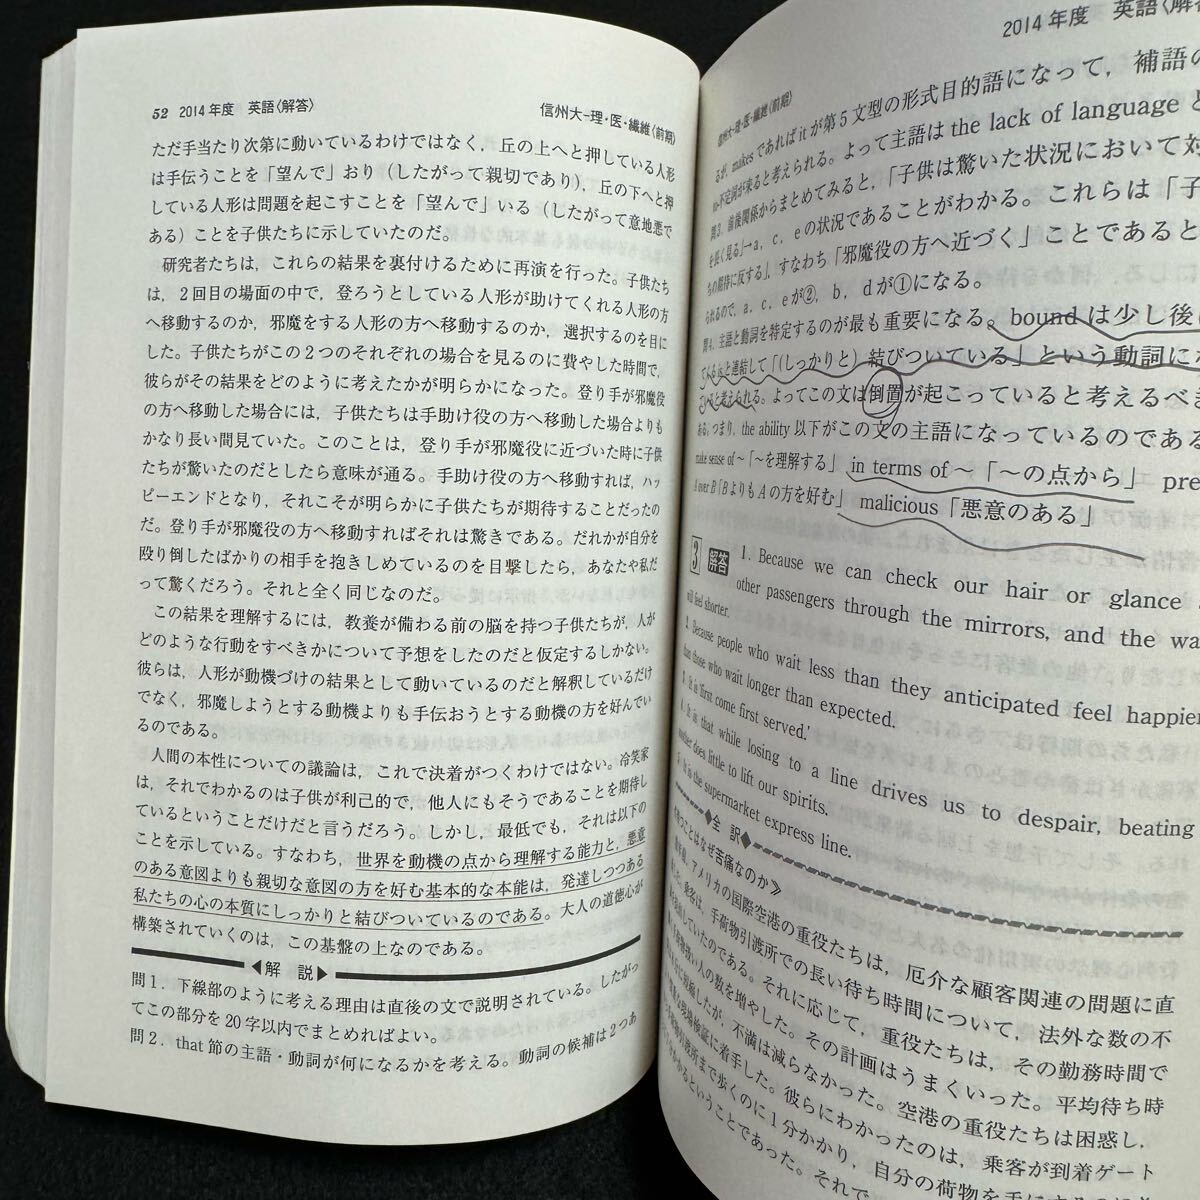 52 2014年度 英語〈解答〉
信州大-理・医・繊維〈前期〉
ただ手当たり次第に動いているわけではなく，丘の上へと押している人形
は手伝うことを「望んで」おり（したがって親切であり），丘の下へと押
している人形は問題を起こすことを「望んで」いる（したがって意地悪で
ある）ことを子供たちに示していたのだ。
研究者たちは，これらの結果を裏付けるために再演を行った。子供たち
は，2回目の場面の中で，登ろうとしている人形が助けてくれる人形の方
へ移動するのか，邪魔をする人形の方へ移動するのか，選択するのを目に
した。子供たちがこの2つのそれぞれの場合を見るのに費やした時間で，
彼らがその結果をどのように考えたかが明らかになった。登り手が邪魔役
の方へ移動した場合には，子供たちは手助け役の方へ移動した場合よりも
かなり長い間見ていた。このことは，登り手が邪魔役に近づいた時に子供
たちが驚いたのだとしたら意味が通る。手助け役の方へ移動すれば，ハッ
ピーエンドとなり，それこそが明らかに子供たちが期待することだったの
だ。登り手が邪魔役の方へ移動すればそれは驚きである。だれかが自分を
殴り倒したばかりの相手を抱きしめているのを目撃したら，あなたや私だ
って驚くだろう。それと全く同じなのだ。
この結果を理解するには，教養が備わる前の脳を持つ子供たちが，人が
どのような行動をすべきかについて予想をしたのだと仮定するしかない。
彼らは，人形が動機づけの結果として動いているのだと解釈しているだけ
でなく，邪魔しようとする動機よりも手伝おうとする動機の方を好んでい
るのである。
人間の本性についての議論は，これで決着がつくわけではない。冷笑家
は，それでわかるのは子供が利己的で，他人にもそうであることを期待し
ているということだけだと言うだろう。しかし，最低でも，それは以下の
ことを示している。すなわち，世界を動機の点から理解する能力と，悪意
のある意図よりも親切な意図の方を好む基本的な本能は，発達しつつある
私たちの心の本質にしっかりと結びついているのである。大人の道徳心が
構築されていくのは，この基盤の上なのである。
◀解 説▶
問1．下線部のように考える理由は直後の文で説明されている。したがっ
てこの部分を20字以内でまとめればよい。
問2．that節の主語・動詞が何になるかを考える。動詞の候補は2つあ
2014年度 英語〈解答
信州大-理・医・繊維〈前期〉
るが，makesであればitが第5文型の形式目的語になって，補語の
to-不定詞が来ると考えられる。よって主語はthe lack of languageと
問3．前後関係からまとめてみると，「子供は驚いた状況において対
を長く見る」→a，c，eの状況であることがわかる。これらは「子
ちの期待に反する」，すなわち「邪魔役の方へ近づく」ことであると
られるので，a，c，eが②，b，dが①になる。
問4．主語と動詞を特定するのが最も重要になる。boundは少し後に
てくるisと連結して「（しっかりと）結びついている」という動詞にな
ていると考えられる。よってこの文は倒置が起こっていると考えるべき
ある。つまり，the ability以下がこの文の主語になっているのである
make sense of～「～を理解する」 in terms of～「～の点から」 pre
A over B「BよりもAの方を好む」 malicious「悪意のある」
3 解答 1. Because we can check our hair or glance
other passengers through the mirrors, and the wa
will feel shorter.
2. Because people who wait less than they anticipated feel happier
than those who wait longer than expected.
3. It is 'first come first served.'
4. It is that while losing to a line drives us to despair, beating
another does little to lift our spirits.
5. It is the supermarket express line.
◆全 訳◆
《待つことはなぜ苦痛なのか》
アメリカの国際空港の重役たちは，厄介な顧客関連の問題に直
乗客は，手荷物引渡所での長い待ち時間について，法外な数の不
していたのである。それに応じて，重役たちは，その勤務時間で
人の数を増やした。その計画はうまくいった。平均待ち時
短縮したが，不満は減らなかった。空港の重役たちは困惑し，
現場検証に着手した。彼らにわかったのは，乗客が到着ゲート
まで歩くのに1分かかり，自分の荷物を手に
ということであった。それで